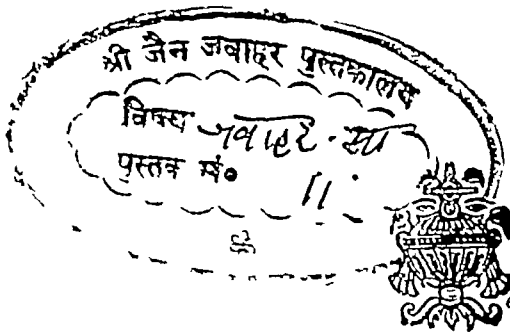 श्री जैन जवाहर पुस्तकालय
विषय जवाहर-सा
पुस्तक सं० 11